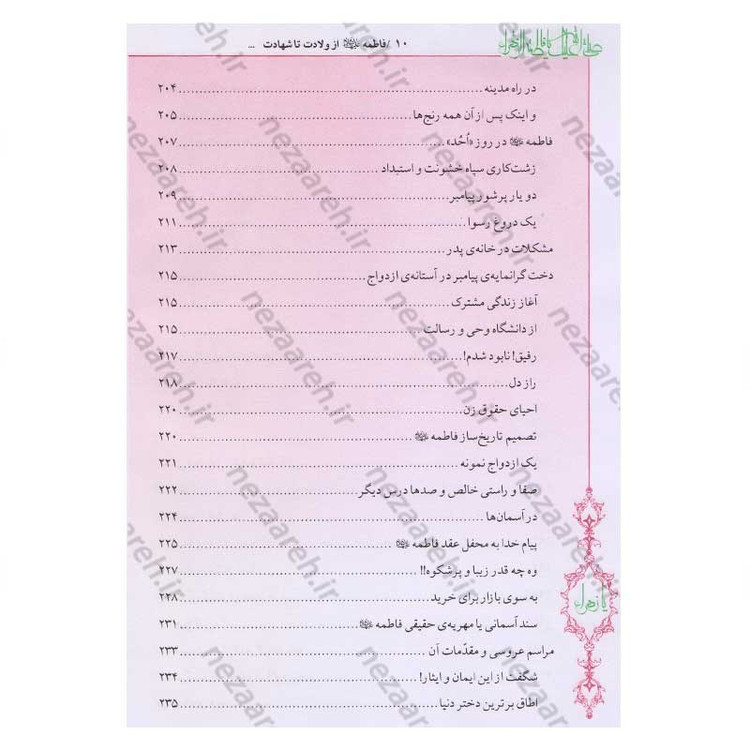 ۱۰ / فاطمه ﷷ از ولادت تا شهادت ...
در راه مدینه ........ ۲۰۴
و اینک پس از آن همه رنج‌ها ........ ۲۰۵
فاطمه در روز «اُحُد» ........ ۲۰۷
زشت‌کاری سیاه خشونت و استبداد ........ ۲۰۸
دو یار پرشور پیامبر ........ ۲۰۹
یک دروغ رسوا ........ ۲۱۱
مشکلات در خانه‌ی پدر ........ ۲۱۳
دخت گرانمایه‌ی پیامبر در آستانه‌ی ازدواج ........ ۲۱۵
آغاز زندگی مشترک ........ ۲۱۵
از دانشگاه وحی و رسالت ........ ۲۱۵
رفیق! نابود شدم! ........ ۲۱۷
راز دل ........ ۲۱۸
احیای حقوق زن ........ ۲۲۰
تصمیم تاریخ‌ساز فاطمه ........ ۲۲۰
یک ازدواج نمونه ........ ۲۲۱
صفا و راستی خالص و صدها درس دیگر ........ ۲۲۲
در آسمان‌ها ........ ۲۲۴
پیام خدا به محفل عقد فاطمه ........ ۲۲۵
وه چه قدر زیبا و پرشکوه!! ........ ۲۲۷
به سوی بازار برای خرید ........ ۲۲۸
سند آسمانی یا مهریه‌ی حقیقی فاطمه ........ ۲۳۱
مراسم عروسی و مقدّمات آن ........ ۲۳۳
شگفت از این ایمان و ایثار! ........ ۲۳۴
اطاق برترین دختر دنیا ........ ۲۳۵
یا زهرا
nezaareh.ir